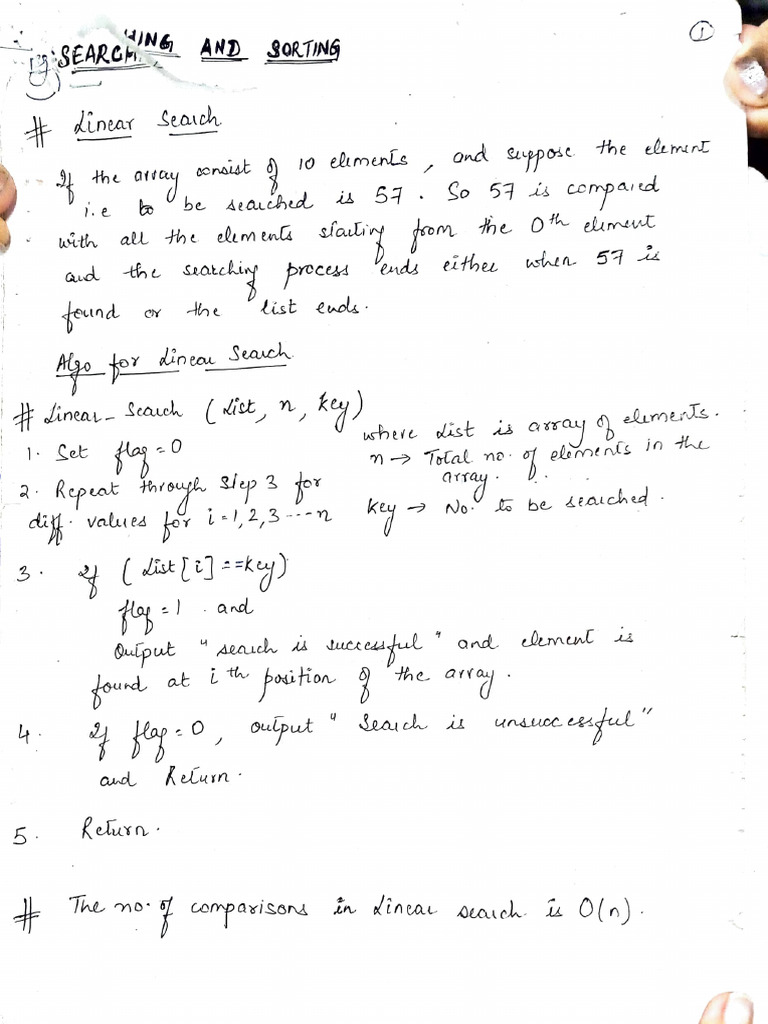 1
SEARCHING AND SORTING
# Linear Search
If the array consist of 10 elements, and suppose the element
i.e to be searched is 57. So 57 is compared
with all the elements starting from the 0th element
and the searching process ends either when 57 is
found or the list ends.
Algo for Linear Search
# Linear_Search (List, n, key)
where List is array of elements.
1. Set flag=0
n → Total no. of elements in the
array.
2. Repeat through Step 3 for
diff. values for i=1,2,3----n
key → No. to be searched.
3. If (List[i]==key)
flag=1 and
Output "search is successful" and element is
found at ith position of the array.
4. If flag=0, output "Search is unsuccessful"
and Return.
5. Return.
# The no. of comparisons in Linear search is O(n).